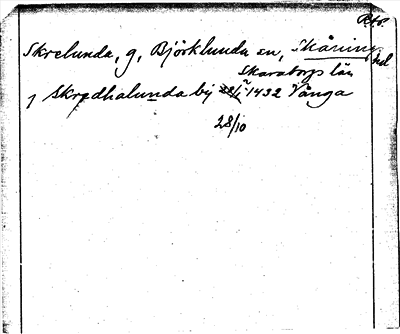 Rkr.
Skrelunda, g, Björklunda sn, Skånings hd
Skaraborgs län
j Skredhalunda by 1432 Vånga
28/10